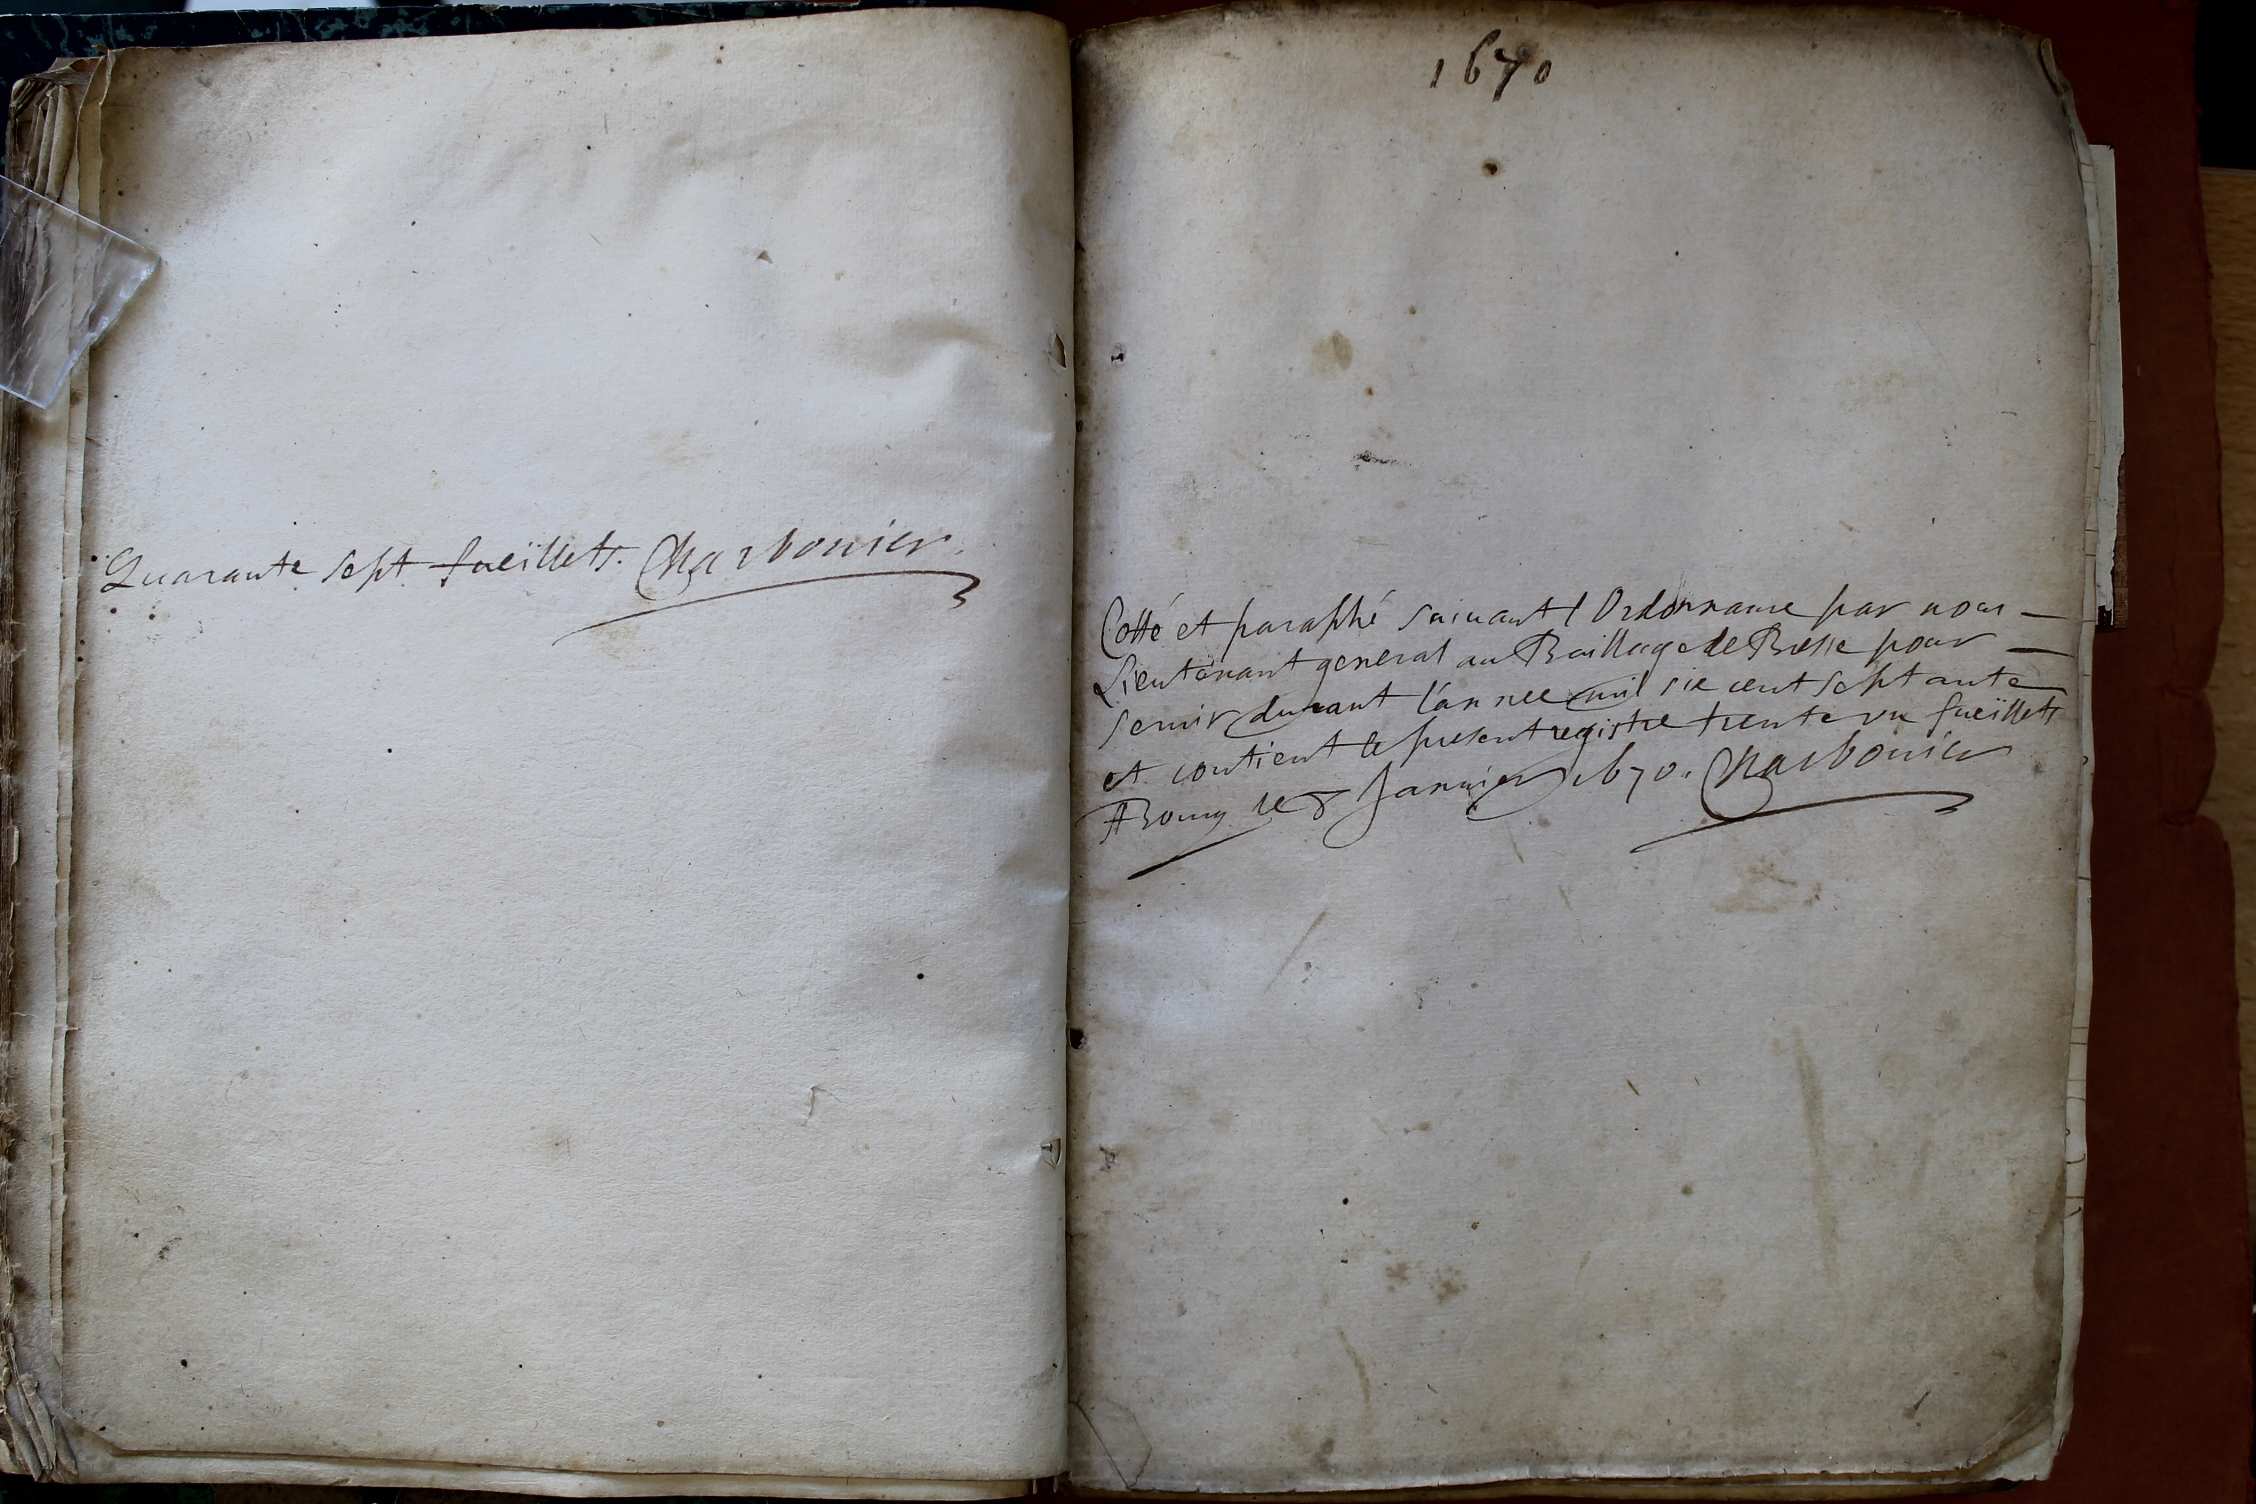 Quarante sept fueïllets. Charbonier.
1670
Cotté et paraphé suiuant l'Ordonnance par nous
Lieutenant general au Baillage de Bresse pour
seruir durant l'année mil six cent septante
et contient le present registre trente vn fueïllets
A Bourg le 8 Januier 1670. Charbonier